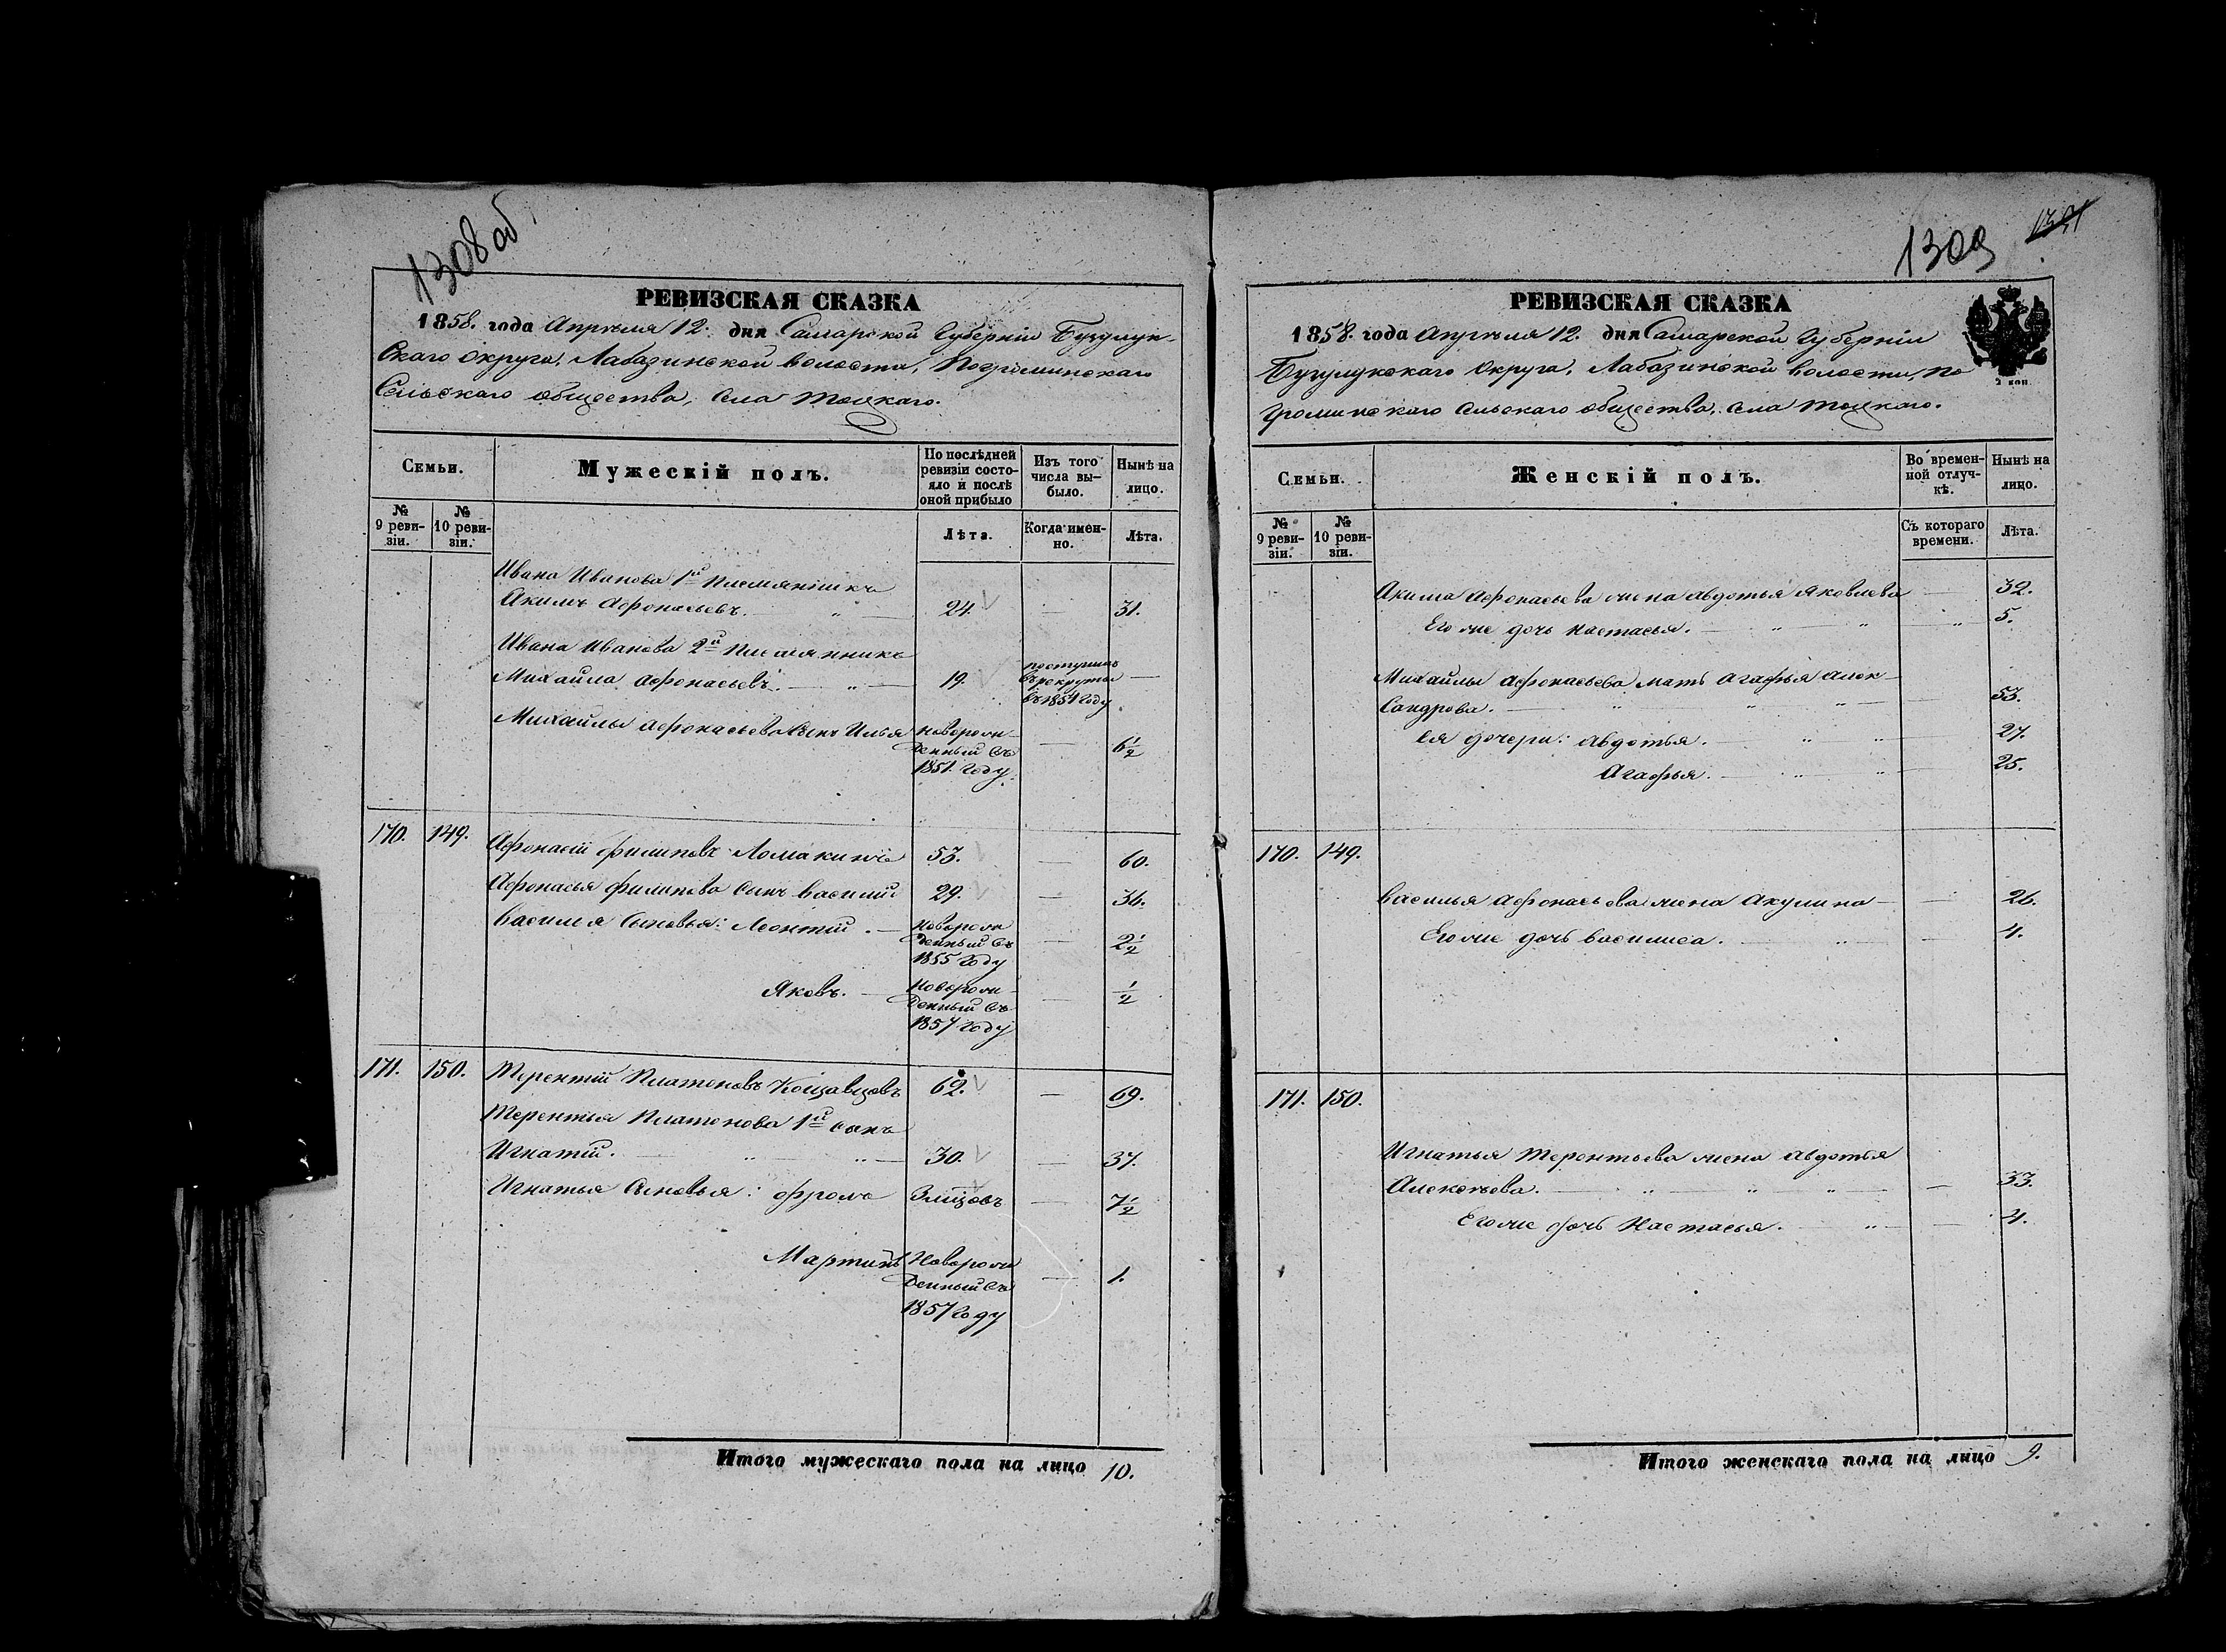 1308 об
РЕВИЗСКАЯ СКАЗКА
1858. года Апреля 12. дня Самарской Губерніи Бузулук-
скаго Округа, Лабазинской волости, Погроминскаго
Сельскаго общества, села Тоцкаго.
Семьи.
Мужескій полъ.
По послѣдней ревизіи состояло и послѣ оной прибыло
Изъ того числа выбыло.
Нынѣ на лицо.
№ 9 ревизіи.
№ 10 ревизіи.
Лѣта.
Когда именно.
Лѣта.
Ивана Иванова 1й племянникъ
Акимъ Афонасьевъ. 24. — 31.
Ивана Иванова 2й племянникъ
Михайла Афонасьевъ. 19. поступилъ въ рекруты въ 1854 году —
Михайлы Афонасьева сынъ Илья новорожденный въ 1851. году. — 6½
170. 149. Афонасій Филиповъ Ломакинъ 53. — 60.
Афонасья Филипова сынъ Василий 29. — 36.
Василья Сыновья: Леонтій. — новорожденный въ 1855 году — 2½
Яковъ. — Новорожденный въ 1857 году — ½
171. 150. Терентій Платоновъ 62. — 69.
Терентья Платонова 1й сынъ
Игнатій. 30. — 37.
Игнатья Сыновья: Фролъ — 7½
Мартинъ Новорожденный въ 1857 году — 1.
Итого мужескаго пола на лицо 10.
1309
РЕВИЗСКАЯ СКАЗКА
1858. года Апреля 12. дня Самарской Губерніи
Бузулукскаго Округа, Лабазинской волости, По
громинскаго сельскаго общества, села Тоцкаго.
2 коп.
Семьи.
Женскій полъ.
Во временной отлучкѣ.
Нынѣ на лицо.
№ 9 ревизіи.
№ 10 ревизіи.
Съ котораго времени.
Лѣта.
Акима Афонасьева жена Авдотья Яковлева — 32.
Его же дочь Настасья. — 5.
Михайлы Афонасьева мать Агафья Алек-
сандрова. — 53.
Ея дочери: Авдотья. — 27.
Агафья. — 25.
170. 149.
Василья Афонасьева жена Акулина — 26.
Его же дочь Василиса. — 4.
171. 150.
Игнатья Терентьева жена Авдотья
Алексеева. — 33.
Его же дочь Настасья. — 4.
Итого женскаго пола на лицо 9.